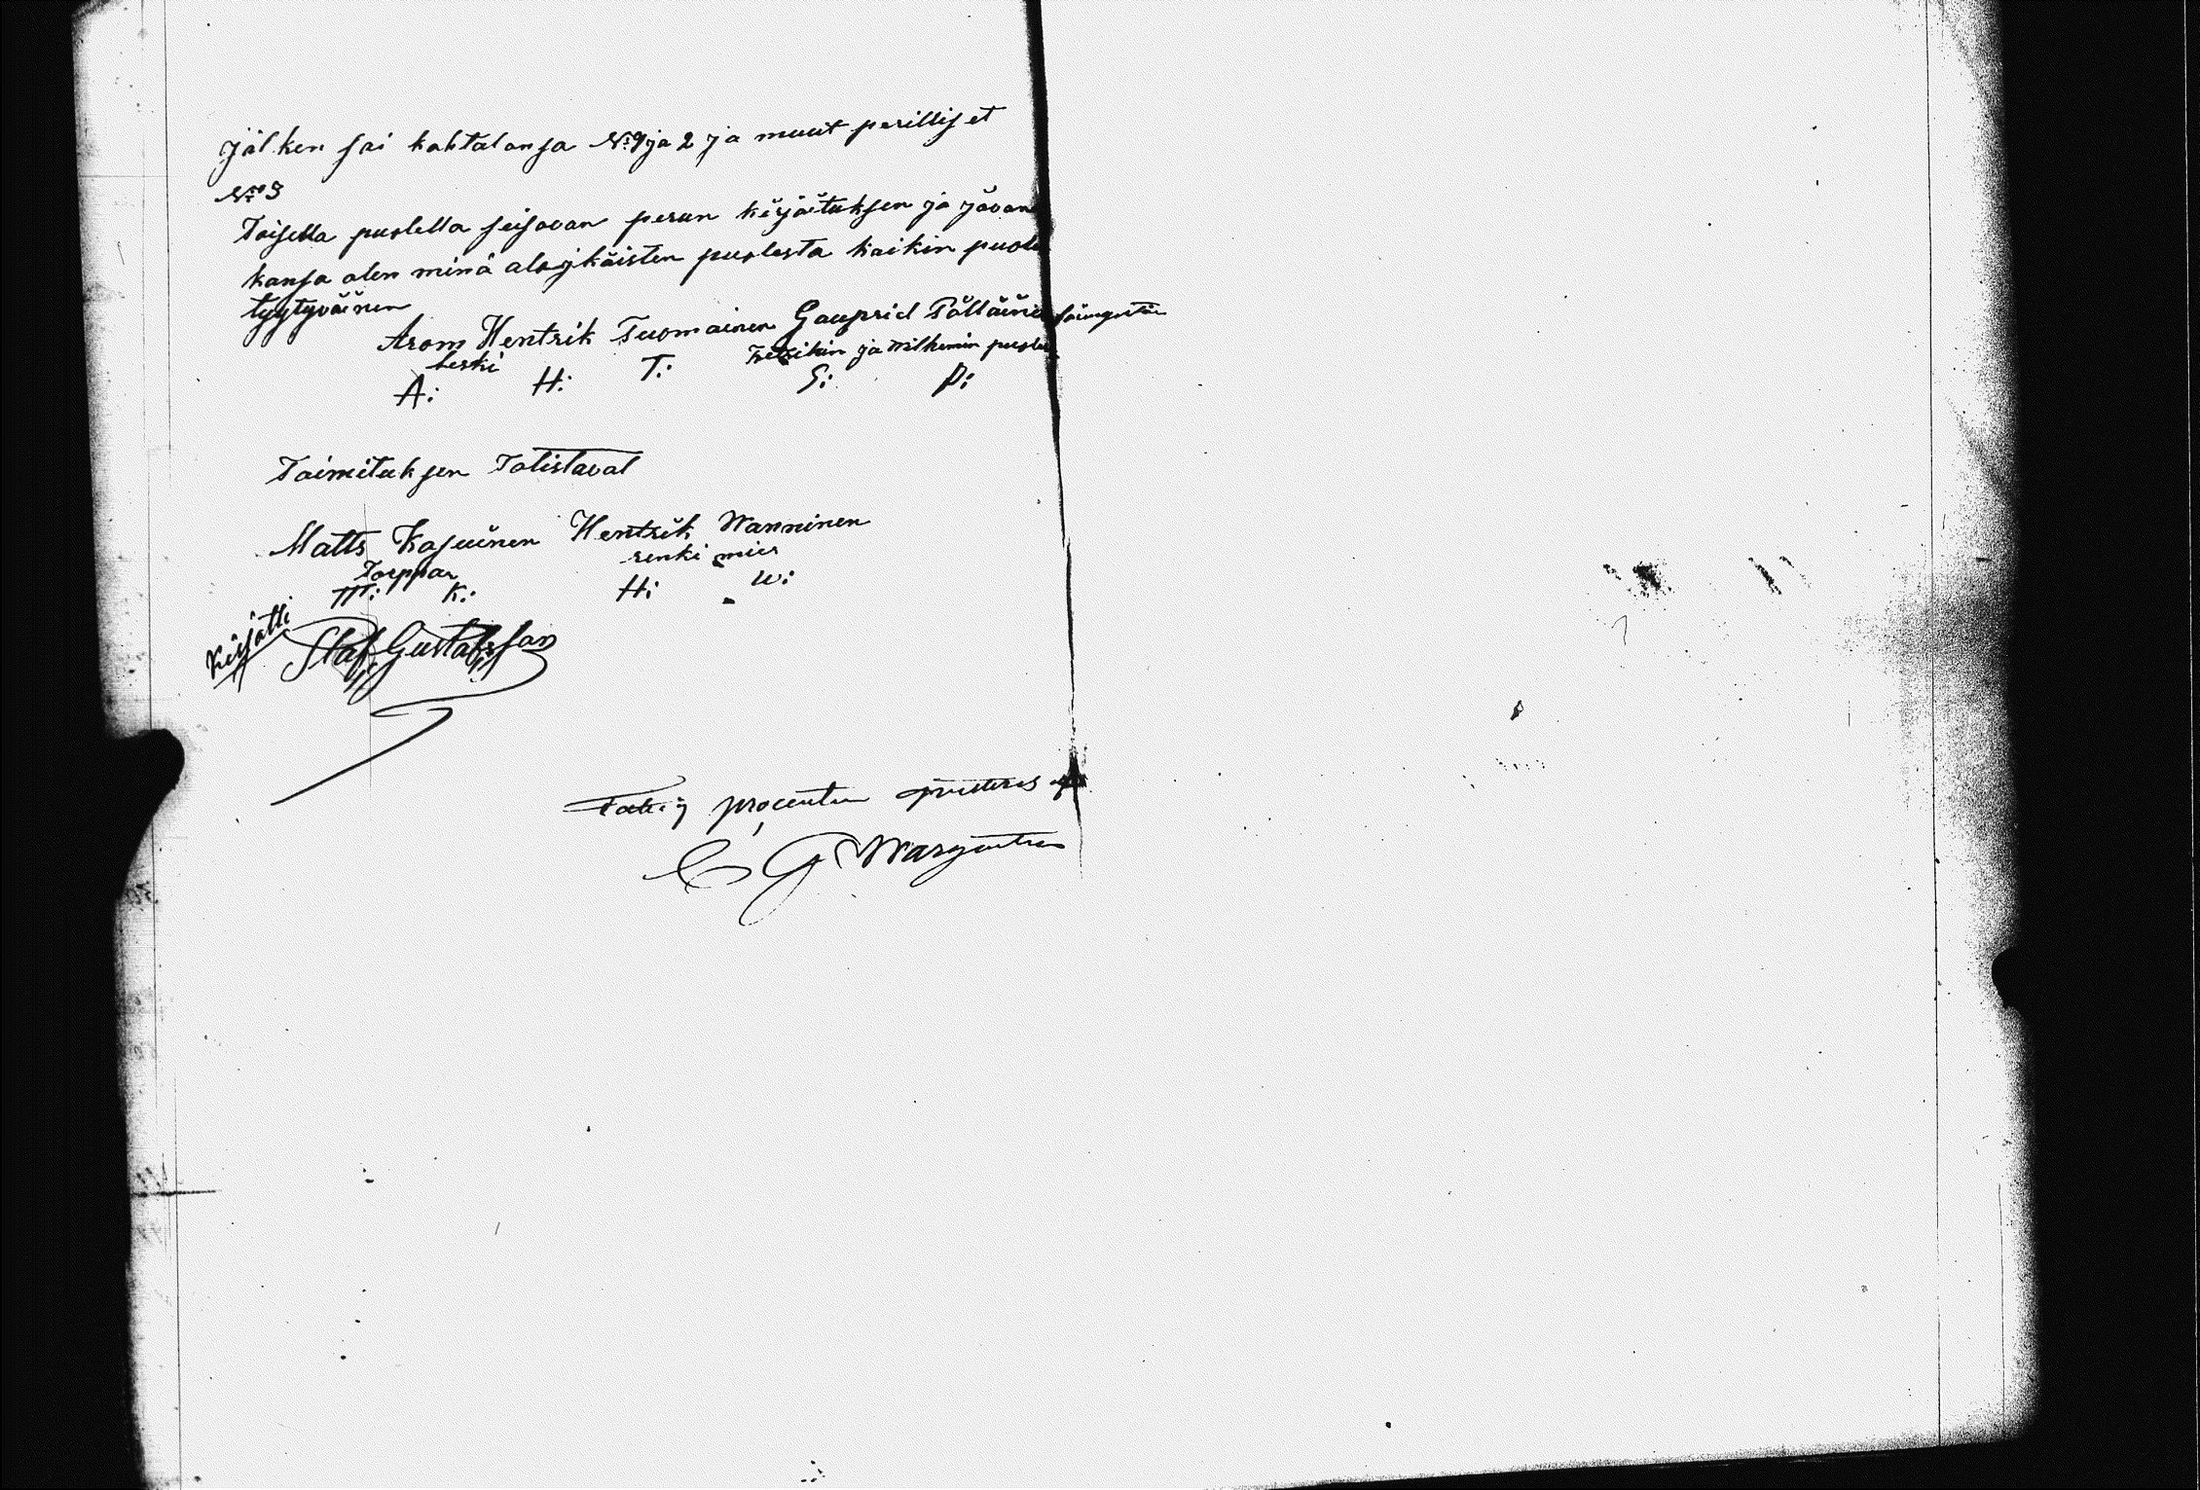 jälken sai kahtalansa No 1 ja 2 ja muut perilliset
No 3
Toisella puolella seisovan perun kirjäituksen ja jaon
kansa olen minä alaijkäisten puolesta kaikin puol
tyytyväinen
Arom Hentrik Tuomainen Gauprid Pöllänen
leski ja Wilhemin puolest
A: H: T: G: P:
Toimituksen Totistavat
Matts Kasuinen Hentrik Wanninen
Torppar renki mies
M: K: H: W:
Kirjätti
Staf Gustafsson
Fattig procenten qvitteras
C G Wargentin